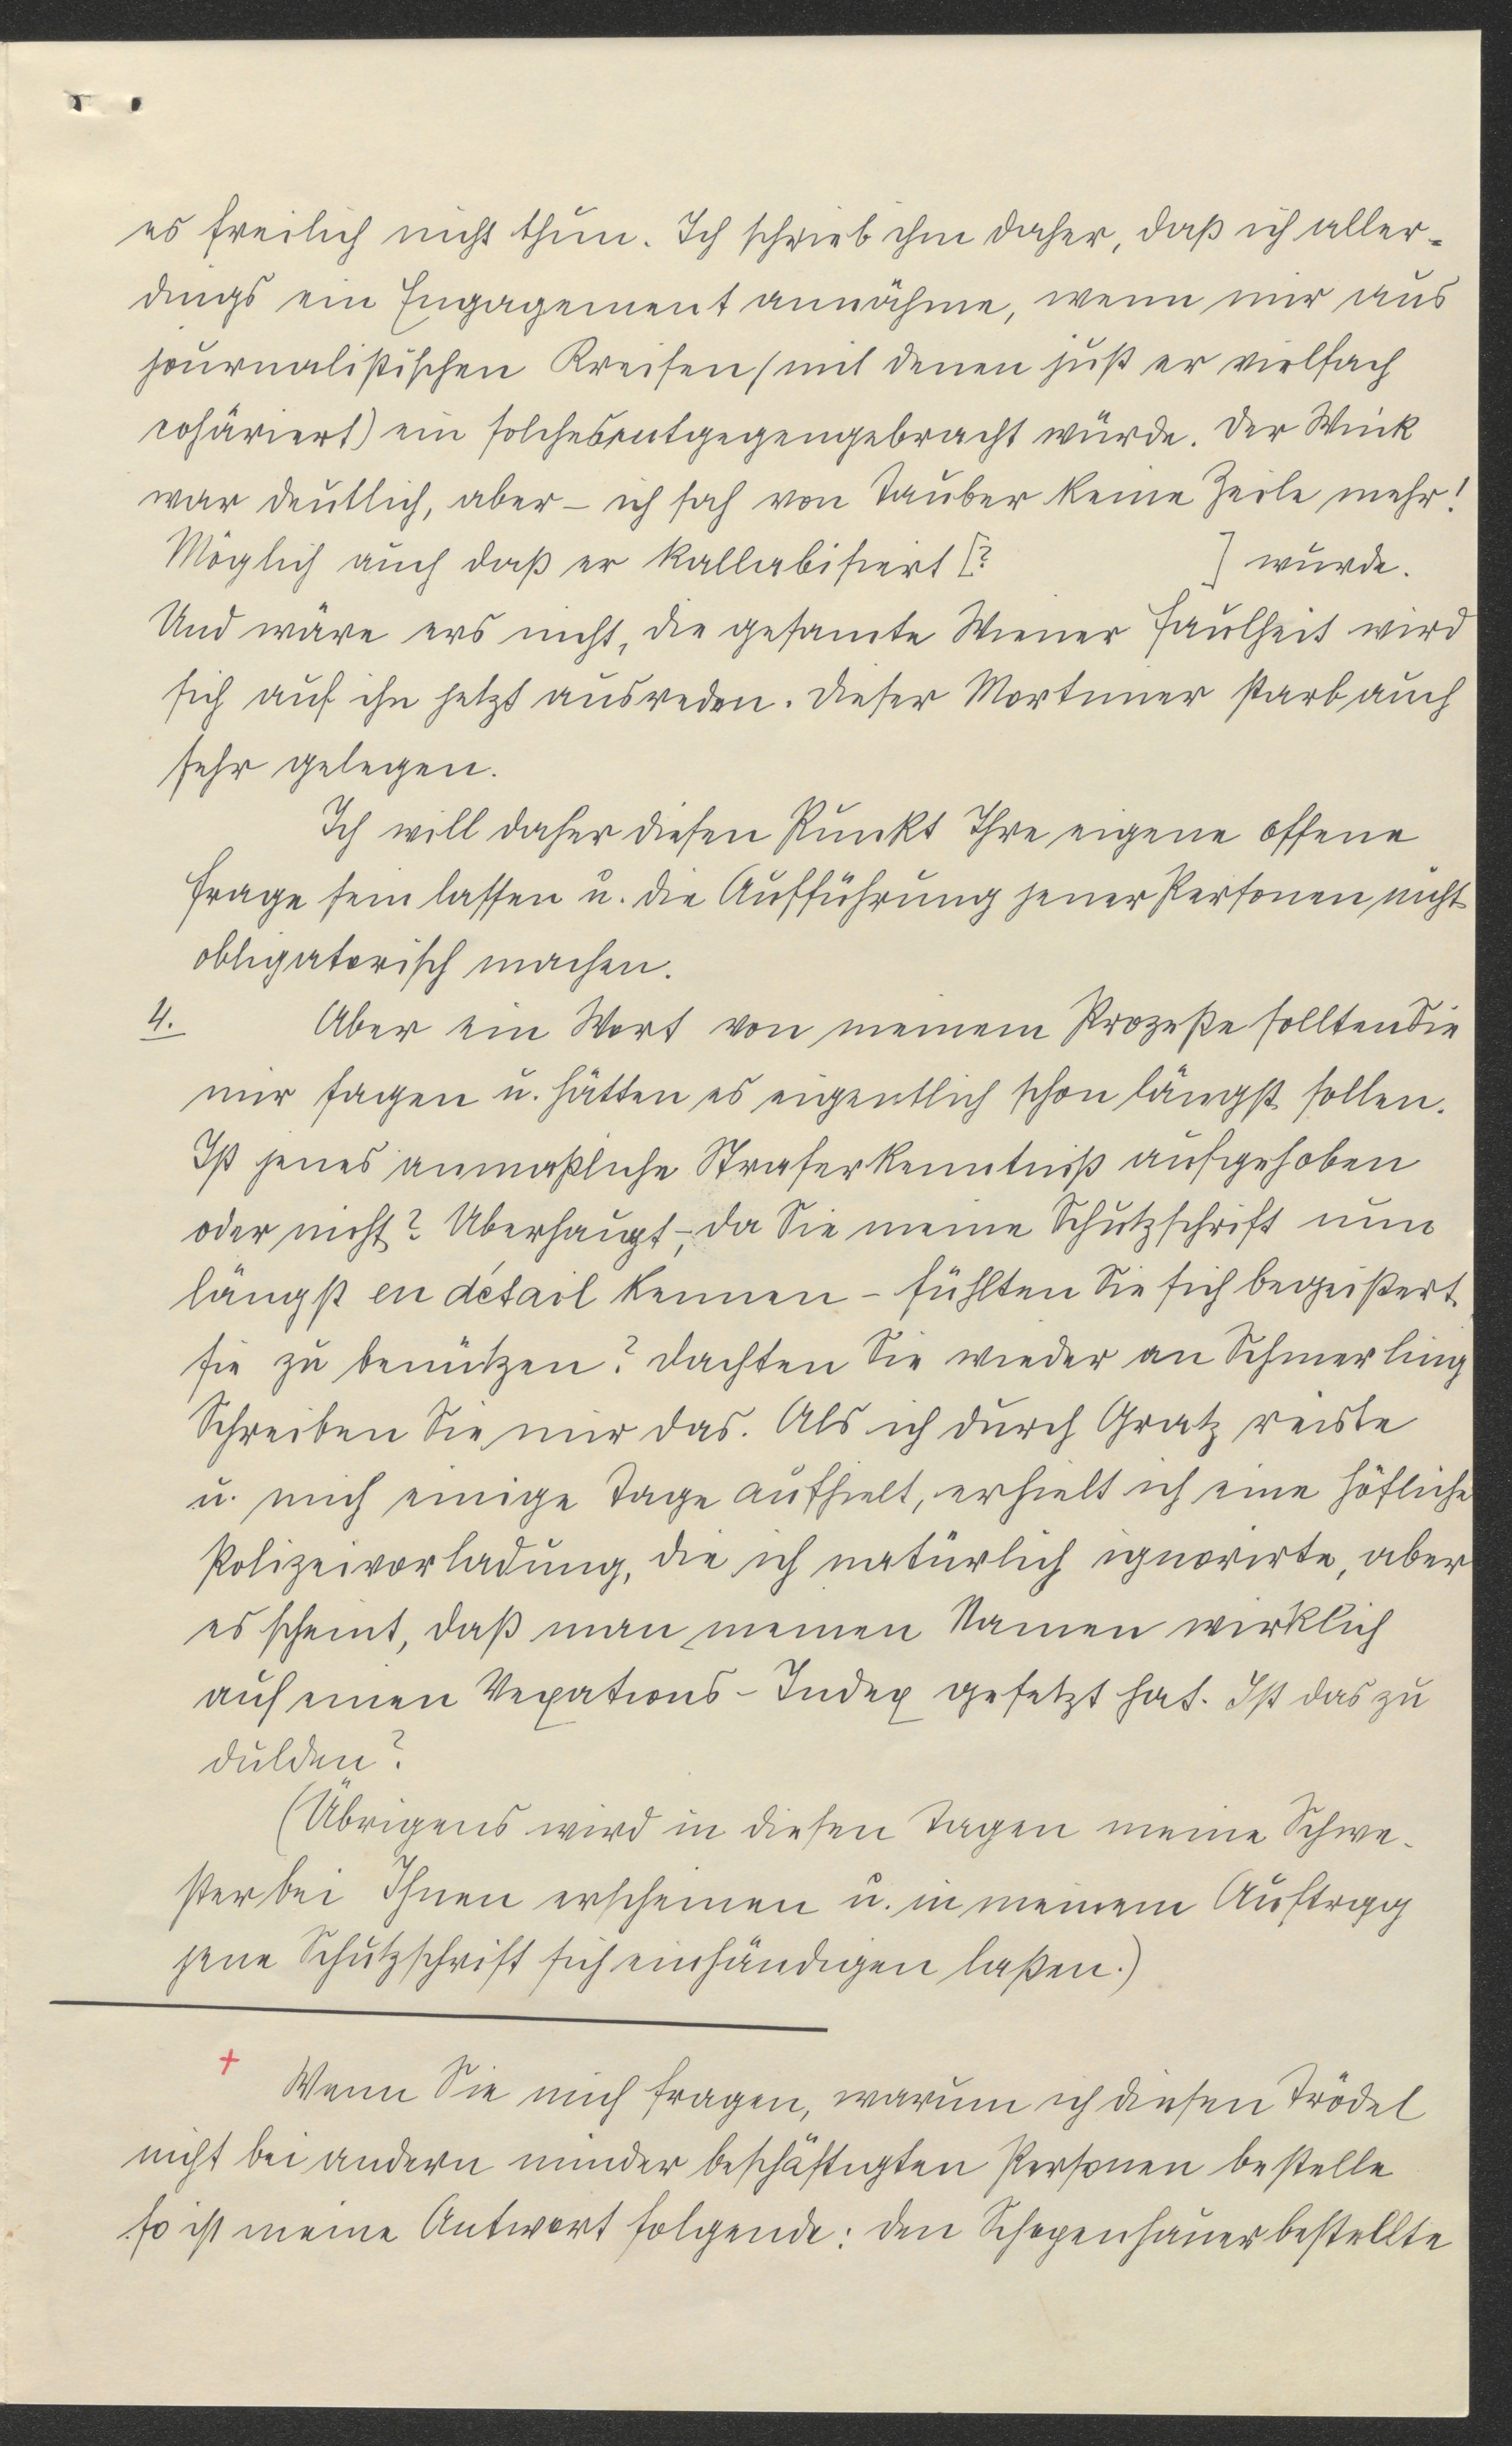 es freilich nicht thun. Ich schrieb ihm daher, daß ich aller-
dings ein Engagement annähme, wenn mir aus
journalistischen Kreisen (mit denen just er vielfach
cohäriert) ein solches entgegengebracht würde. Der Wink
war deutlich, aber – ich sah von Tauber keine Zeile mehr!
Möglich auch daß er kallabisiert [? ] wurde.
Und wäre ers nicht, die gesamte Wiener Faulheit wird
sich auf ihn jetzt ausreden. Dieser Mortimer starb auch
sehr gelegen.
Ich will daher diesen Punkt Ihre eigene offene
Frage sein lassen u. die Aufführung jener Personen nicht
obligatorisch machen.
4. Aber ein Wort von meinem Prozeße sollten Sie
mir sagen u. hätten es eigentlich schon längst sollen.
Ist jenes anmaßliche Straferkenntniß aufgehoben
oder nicht? Überhaupt –, da Sie meine Schutzschrift nun
längst en détail kennen – fühlten Sie sich begeistert
sie zu benützen? Dachten Sie wieder an Schmerling
Schreiben Sie mir das. Als ich durch Gratz reiste
u. mich einige Tage aufhielt, erhielt ich eine höfliche
Polizeivorladung, die ich natürlich ignorirte, aber
es scheint, daß man meinen Namen wirklich
auf einen Vexations-Index gesetzt hat. Ist das zu
dulden?
(Übrigens wird in diesen Tagen meine Schwe-
ster bei Ihnen erscheinen u. in meinem Auftrag
jene Schutzschrift sich einhändigen laßen.)
+ Wenn Sie mich fragen, warum ich diesen Trödel
nicht bei andern minder beschäftigten Personen bestelle
so ist meine Antwort folgende: den Schopenhauer bestellte